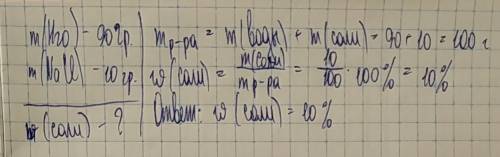 m(H2O) - 90гр.
m(NaCl) - 10гр.
w(соли) - ?
mр-ра = m(воды) + m(соли) = 90 + 10 = 100 г
w(соли) = m(соли) / mр-ра = 10 / 100 · 100% = 10%
Ответ: w(соли) = 10%